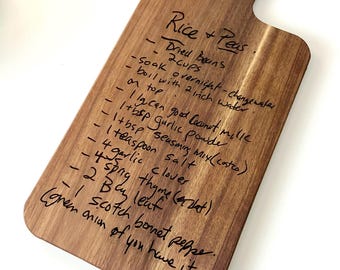 Rice + Peas.
- Dried beans
2 cups
- soak overnight - change water
- boil with 2 inch water
on top
- 1 can good coconut milk
- 1 tbsp garlic powder
- 1 tbsp seasoning mix
- 1 teaspoon salt
- 4 garlic clover
- 4 sprig thyme
- 2 Bay leaf
- 1 scotch bonnet pepper.
(green onion if you have it